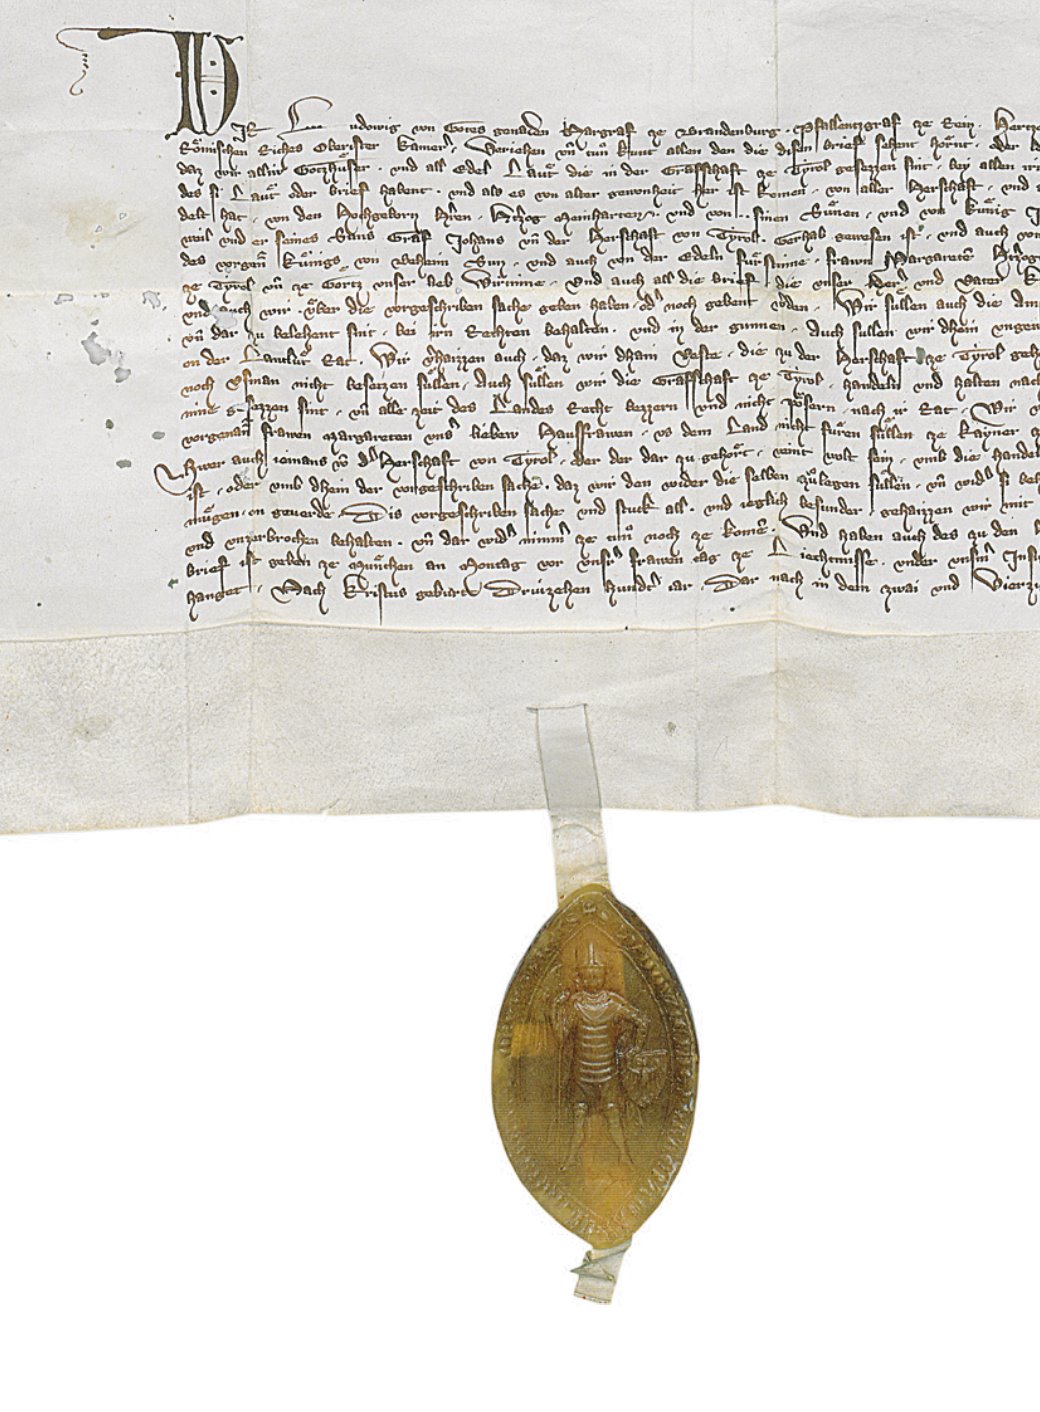 WIR Ludowig von Gotes genaden Margraf ze Brandenburg · Pfallentzgraf ze Rein · Hertzo
Roͤmischen Riches Oberister Kamerer · Veriehen vñ tun kunt allen den die disen brief sehent hoͤrnt · Der
daz wir alliu Gotzhuͤser · vnd all Edel Laut die in der Grafschaft ze Tyrol gesezzen sint · bey allen iri
des si Laut oder brief habent · vnd als es von alter gewonheit her ist komen · von aller Herschaft · vnd
delt hat · von den Hochgeborn Hren · Hertzog Meinharten · vnd von · sinen Suͤnen · vnd von Kuͤnig J
weil vnd er seines Suns Graf Johans vñ der Herschaft von Tyrol · Gerhab gewesen ist · vnd auch von
des vorgenñ Kuͤnigs von Beheim Sun · vnd auch von der Edeln Fuͤrstinne · frawn Margareten Hrzog
ze Tyrol vñ ze Goͤrtz vnser lieb Wirtinne · Vnd auch all die brief die vnser Herr vnd Vater K
vnd auch wir · vͤber die vorgeschriben sache geben haben · od noch gebent werden · Wir suͤllen auch die Am
vñ dar zu belehent sint · bei irn Rechten behalten · vnd in der gunnen · Auch sullen wir dhein vngen
on der Lantluͤt Rat · Wir verhaizzen auch · daz wir dhain Veste · die zu der Herschaft ze Tyrol geh
noch Vsman nicht besetzen suͤllen · Auch suͤllen wir die Grafschaft ze Tyrol · handeln vnd halten nach
nine gesezzen sint · vñ alle zeit des Landes Recht bezzern vnd nicht poͤsern · nach ir Rat · Wir
vorgenañ frawen Margareten vnser lieben Hausfrawen · vs dem Land nicht fuͤren suͤllen ze kayner
Swer auch iemans vō der Herschaft von Tyrol · der der dar zu gehoͤrt · veint wolt sein · vmb die handel
ist · oder vmb dhein der vorgeschriben sache · daz wir den wider die selben zuͦlegen suͤllen · vñ wider si beh
muͤgen · on geuerde · Dis vorgeschriben sache vnd stuck all · vnd ieglich besunder · gehaizzen wir mit
vnd vnzerbrochen behalten · vñ dar wider nimmer ze tun noch ze komen · Vnd haben auch des zu den
brief ist geben ze Muͤnchen an Montag vor vnsrer frawen tag ze Liechtmisse · vnder vnserm Insi
hanget · Nach Kristus geburt Driuzehen hundert iar · Dar nach in dem zwai vnd Vierzi